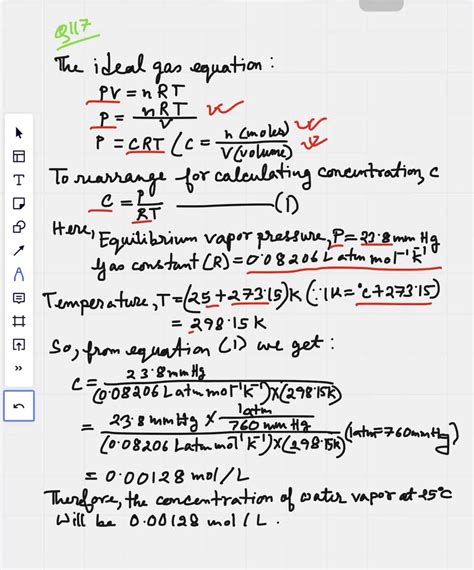 Q117
The ideal gas equation :
PV = nRT
P = nRT/V
P = CRT (C = n(moles)/V(volume))
To rearrange for calculating concentration, c
c = P/RT ———— (1)
Here, Equilibrium vapor pressure, P = 23.8 mm Hg
gas constant (R) = 0.08206 L atm mol⁻¹ K⁻¹
Temperature, T = (25 + 273.15) K (∵ 1K = °C + 273.15)
= 298.15 K
So, from equation (1) we get :
c = 23.8 mm Hg / (0.08206 L atm mol⁻¹ K⁻¹) × (298.15K)
= 23.8 mm Hg × 1 atm/760 mm Hg / (0.08206 L atm mol⁻¹ K⁻¹) × (298.15K) (1atm = 760 mm Hg)
= 0.00128 mol/L
Therefore, the concentration of water vapor at 25°C
will be 0.00128 mol/L.